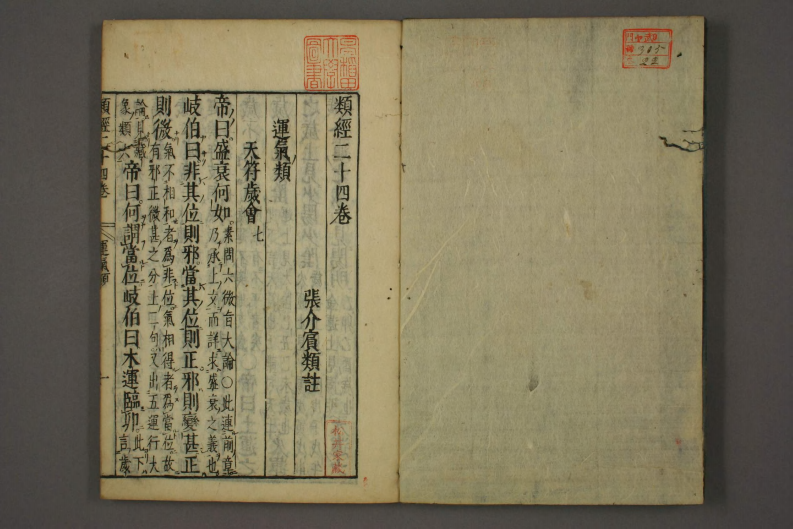 類經二十四卷
張介賓類註
運氣類
天符歲會 七
帝曰盛衰何如 素問六微旨大論○此連前章
乃承上文而詳求盛衰之義也
岐伯曰非其位則邪當其位則正邪則變甚正
則微 氣不相和者爲非位氣相得者爲當位故
有邪正微甚之分上二句又出五運行大
論
象類六 帝曰何謂當位岐伯曰木運臨卯 此下
言歲
類經二十四卷
運氣類
一